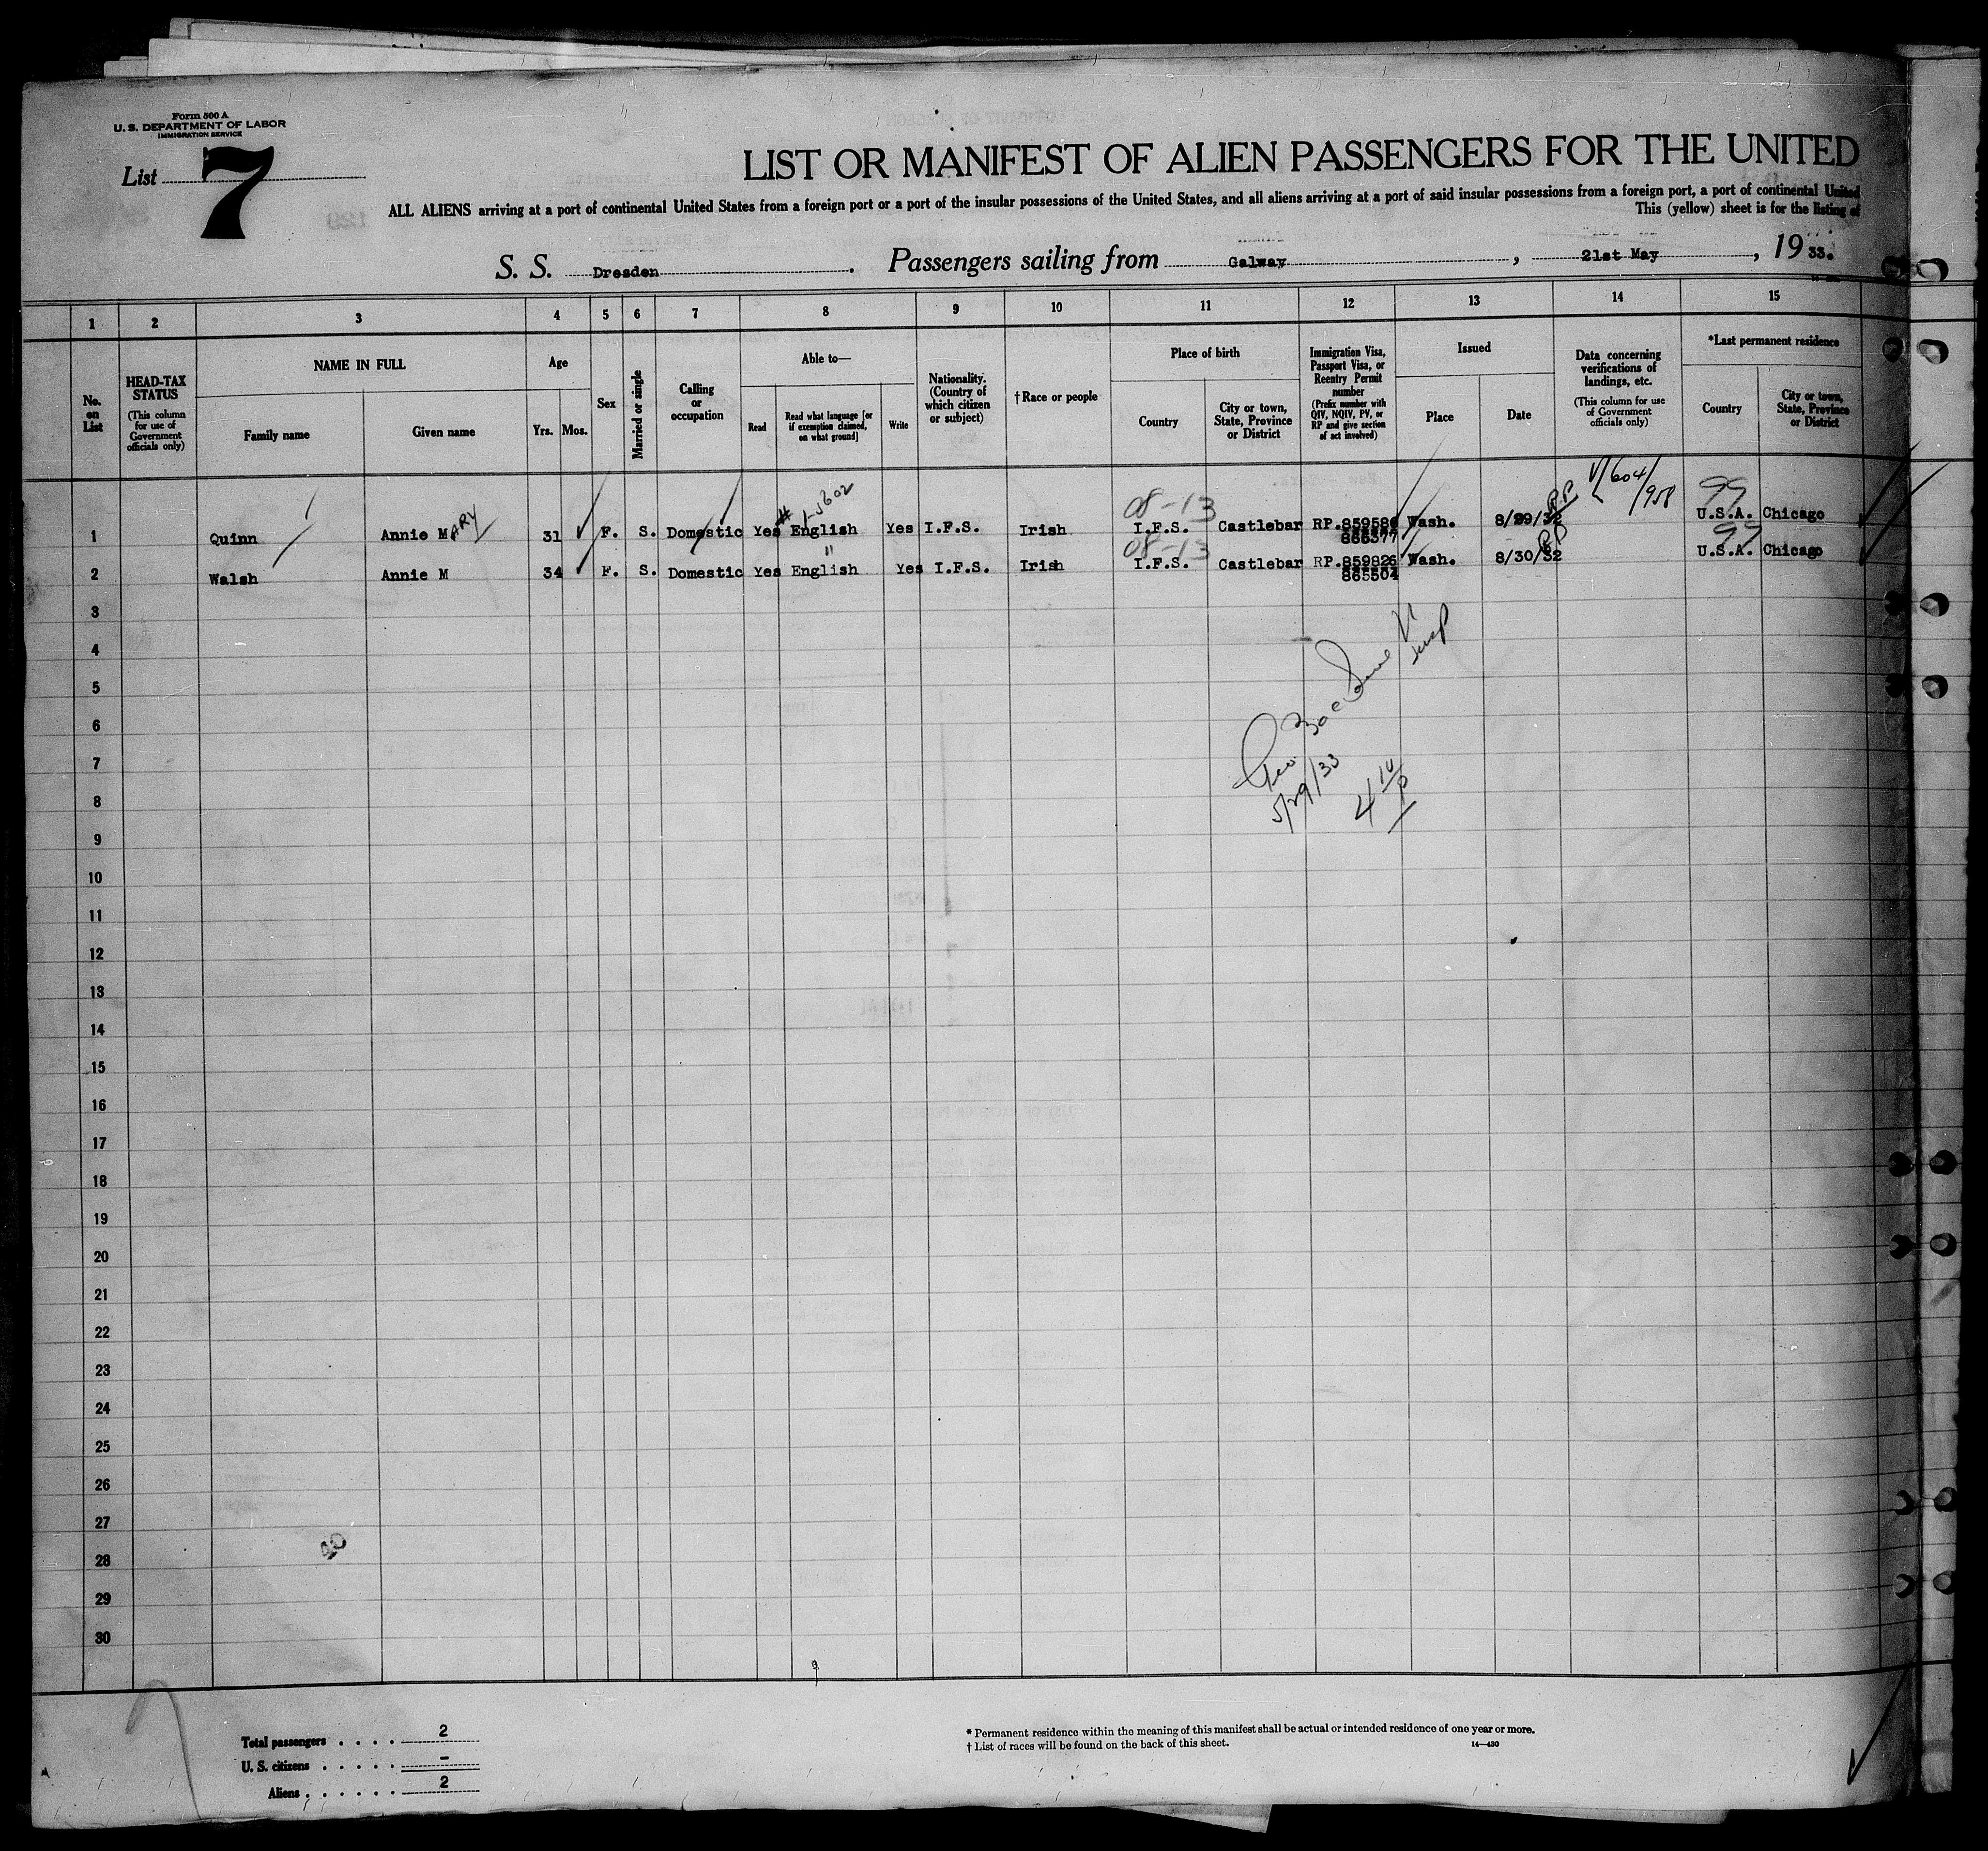 Form 500 A
U. S. DEPARTMENT OF LABOR
IMMIGRATION SERVICE
List 7
LIST OR MANIFEST OF ALIEN PASSENGERS FOR THE UNITED
ALL ALIENS arriving at a port of continental United States from a foreign port or a port of the insular possessions of the United States, and all aliens arriving at a port of said insular possessions from a foreign port, a port of continental United
This (yellow) sheet is for the listing of
S. S. Dresden. Passengers sailing from Galway, 21st May, 1933.
1 2 3 4 5 6 7 8 9 10 11 12 13 14 15
No. on List
HEAD-TAX STATUS (This column for use of Government officials only)
NAME IN FULL
Family name
Given name
Age
Yrs. Mos.
Sex
Married or single
Calling or occupation
Able to—
Read
Read what language [or if exemption claimed, on what ground]
Write
Nationality. (Country of which citizen or subject)
†Race or people
Place of birth
Country
City or town, State, Province or District
Immigration Visa, Passport Visa, or Reentry Permit number (Prefix number with QIV, NQIV, PV, or RP and give section of act involved)
Issued
Place
Date
Data concerning verifications of landings, etc. (This column for use of Government officials only)
*Last permanent residence
Country
City or town, State, Province or District
V/604/958
08-13 99
1 Quinn Annie MARY 31 F. S. Domestic Yes English Yes I.F.S. Irish I.F.S. Castlebar RP.859586 Wash. 8/29/32 RP U.S.A. Chicago
866377
08-13 99
2 Walsh Annie M 34 F. S. Domestic Yes English Yes I.F.S. Irish I.F.S. Castlebar RP.859826 Wash. 8/30/32 RP U.S.A. Chicago
865504
3
4
5
6
7
8
9
10
11
12
13
14
15
16
17
18
19
20
21
22
23
24
25
26
27
28
29
30
5/29/33
Total passengers . . . . 2
U. S. citizens . . . . . -
Aliens . . . . . . 2
* Permanent residence within the meaning of this manifest shall be actual or intended residence of one year or more.
† List of races will be found on the back of this sheet. 14—430